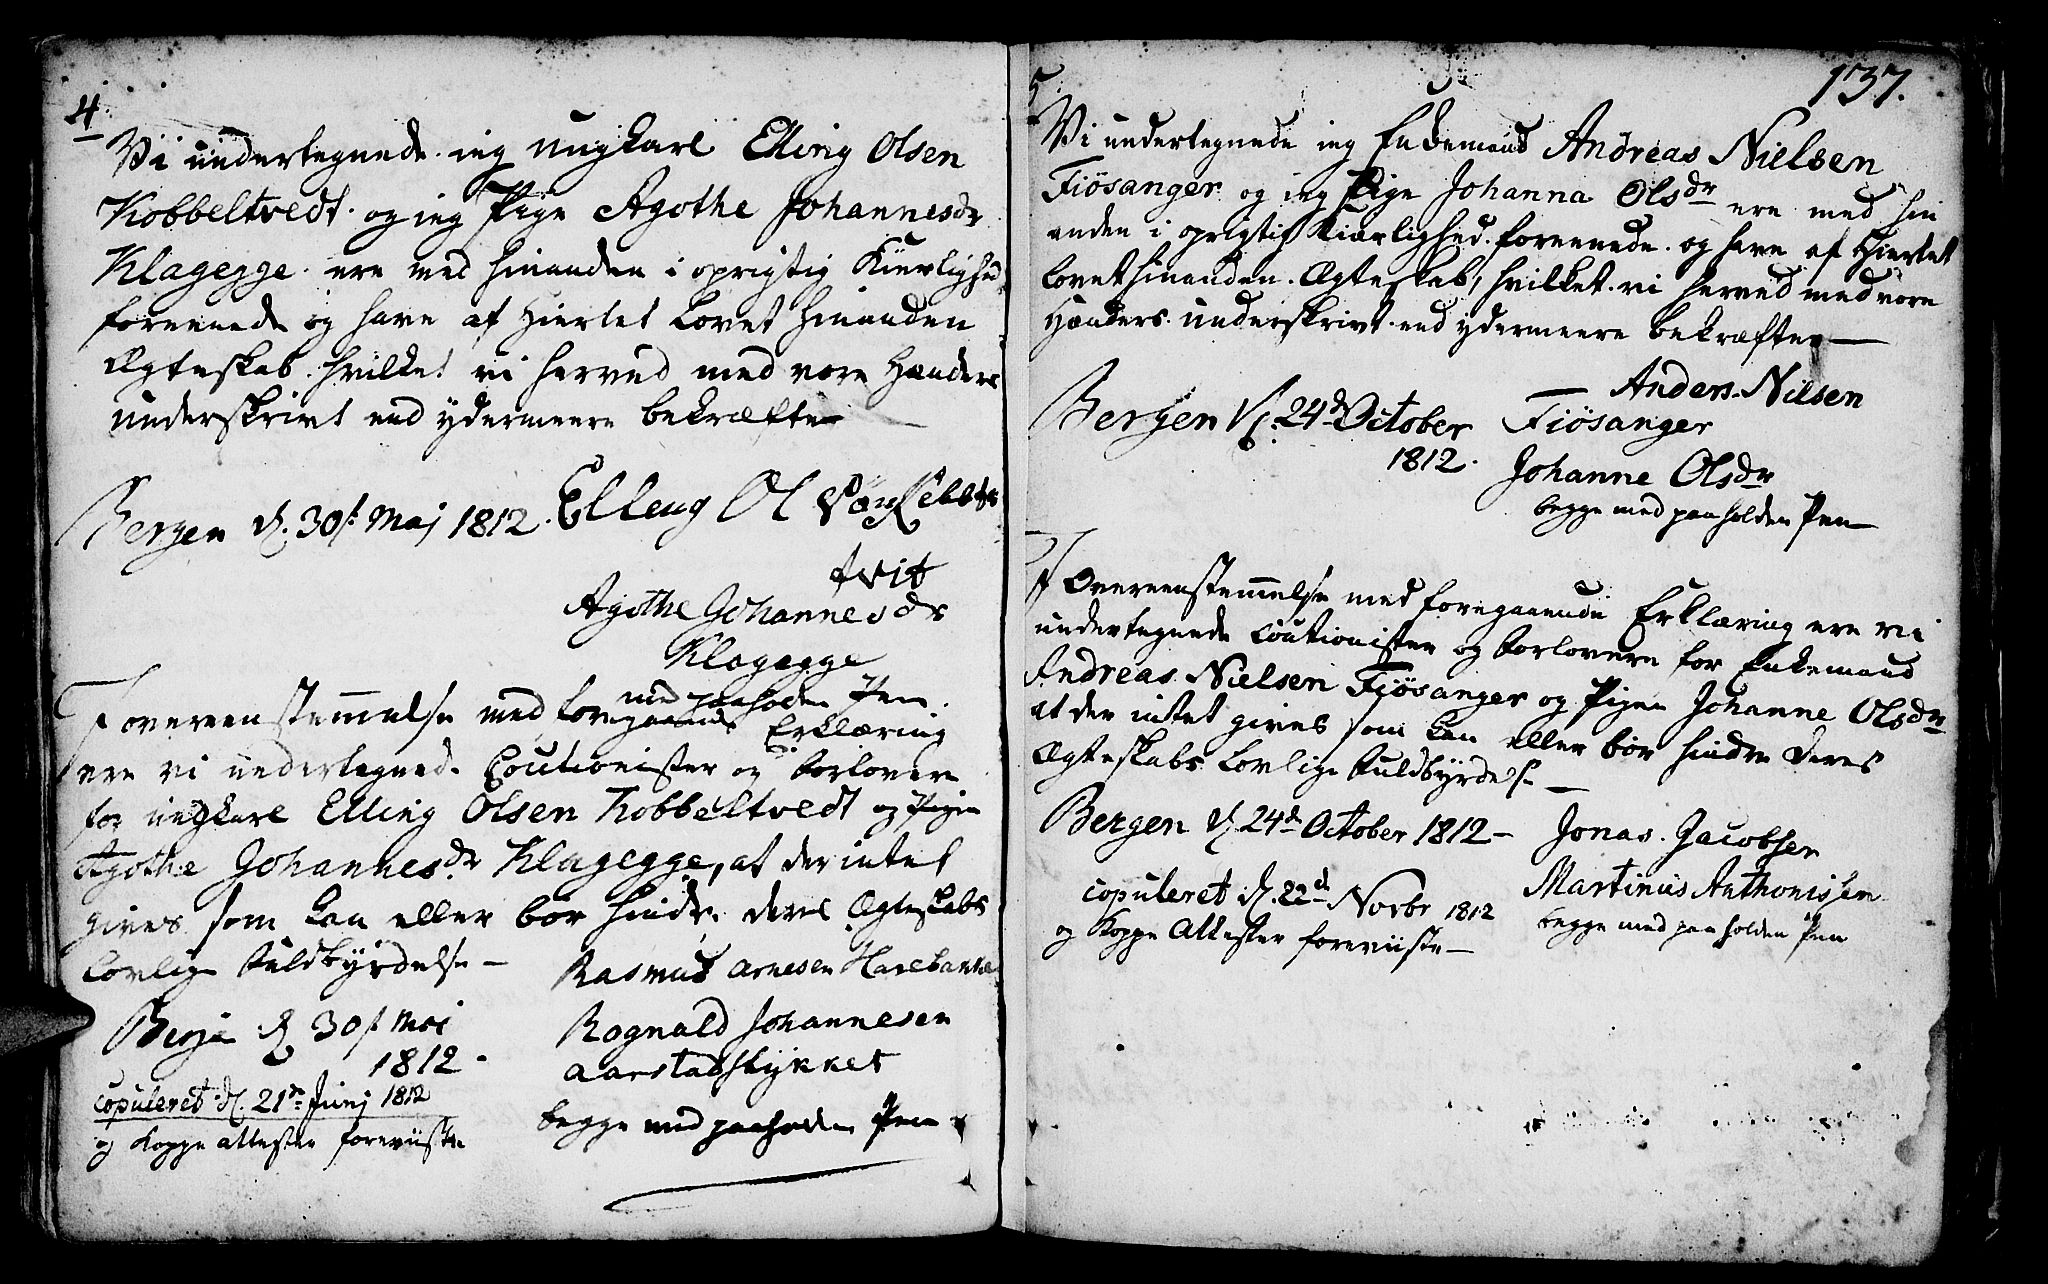 4
Vi undertegnede ieg ungkarl Elling Olsen
Kobbeltvedt og ieg Pige Agothe Johannesdr
Klagegge ere med hinanden i oprigtig Kierlighed
foreenede og have af Hiertet Lovet hinanden
Ægteskab hvilket vi herved med vore Hænders
underskrivt end ydermeere bekræfter
Bergen d. 30t Maj 1812. Elleng Ol
tvit
Agothe Johannesdr
Klagegge
med paaholden Pen
I overeenstemmelse med foregaaende Erklæring
ere vi undertegnede Coutionister og forlovere
for ungkarl Elling Olsen Kobbeltvedt og Pigen
Agothe Johannesdr Klagegge, at der intet
gives som kan eller bør hindre deres Ægteskabs
Lovlige Fuldbyrdelse —
Rasmus Arnesen Harebakke
Bergen d. 30t Maj
1812.
Rognald Johannesen
Aarstadstykket
begge med paaholden Pen
copuleret d. 21de Junj 1812
og Koppe attester foreviiste
137.
5
Vi undertegnede ieg Enkemand Andreas Nielsen
Fiösanger og ieg Pige Johanna Olsdr ere med hin
anden i oprigtig Kiærlighed foreenede og have af Hiertet
lovet hinanden Ægteskab, hvilket vi herved med vore
Hænders underskrivt end ydermeere bekræfter —
Anders Nilsen
Bergen d. 24de October Fiösanger
1812.
Johanne Olsdr
begge med paaholden Pen
I Overeenstemmelse med foregaaende Erklæring ere vi
undertegnede Coutionister og forlovere for Enkemand
Andreas Nielsen Fiösanger og Pigen Johanne Olsdr
at der intet gives som kan eller bør hindre deres
Ægteskabs Lovlige Fuldbyrdelse —
Bergen d. 24de October 1812 — Jonas Jacobsen
Martinus Anthonissen
begge med paaholden Pen
copuleret d. 22de Novbr 1812
og Koppe Attester foreviiste —